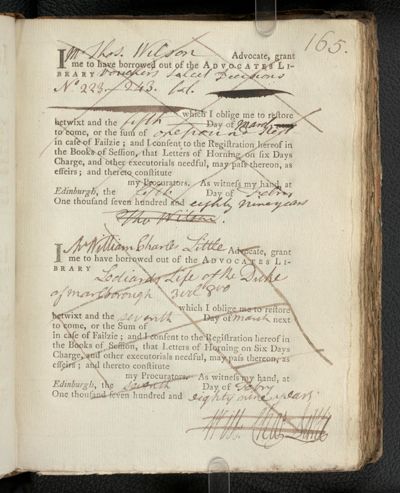 165.
I Mr Thos. Wilson Advocate, grant
me to have borrowed out of the ADVOCATES LI-
BRARY Decisions
No 223. 243. Cat.
which I oblige me to restore
betwixt and the fifth Day of March next
to come, or the sum of one pound Ster
in case of Failzie; and I consent to the Registration hereof in
the Books of Session, that Letters of Horning on six Days
Charge, and other executorials needful, may pass thereon, as
effeirs; and thereto constitute
my Procurators. As witness my hand, at
Edinburgh, the fifth Day of Febry
One thousand seven hundred and eighty nine years
Tho Wilson.
I Mr William Charles Little Advocate, grant
me to have borrowed out of the ADVOCATES LI-
BRARY Lediards Life of the Duke
of marlborough 3 vol 8vo
which I oblige me to restore
betwixt and the seventh Day of march next
to come, or the Sum of
in case of Failzie; and I consent to the Registration hereof in
the Books of Session, that Letters of Horning on Six Days
Charge, and other executorials needful, may pass thereon, as
effeirs; and thereto constitute
my Procurators. As witness my hand, at
Edinburgh, the seventh Day of Febry
One thousand seven hundred and eighty nine years.
Will: Char: Little